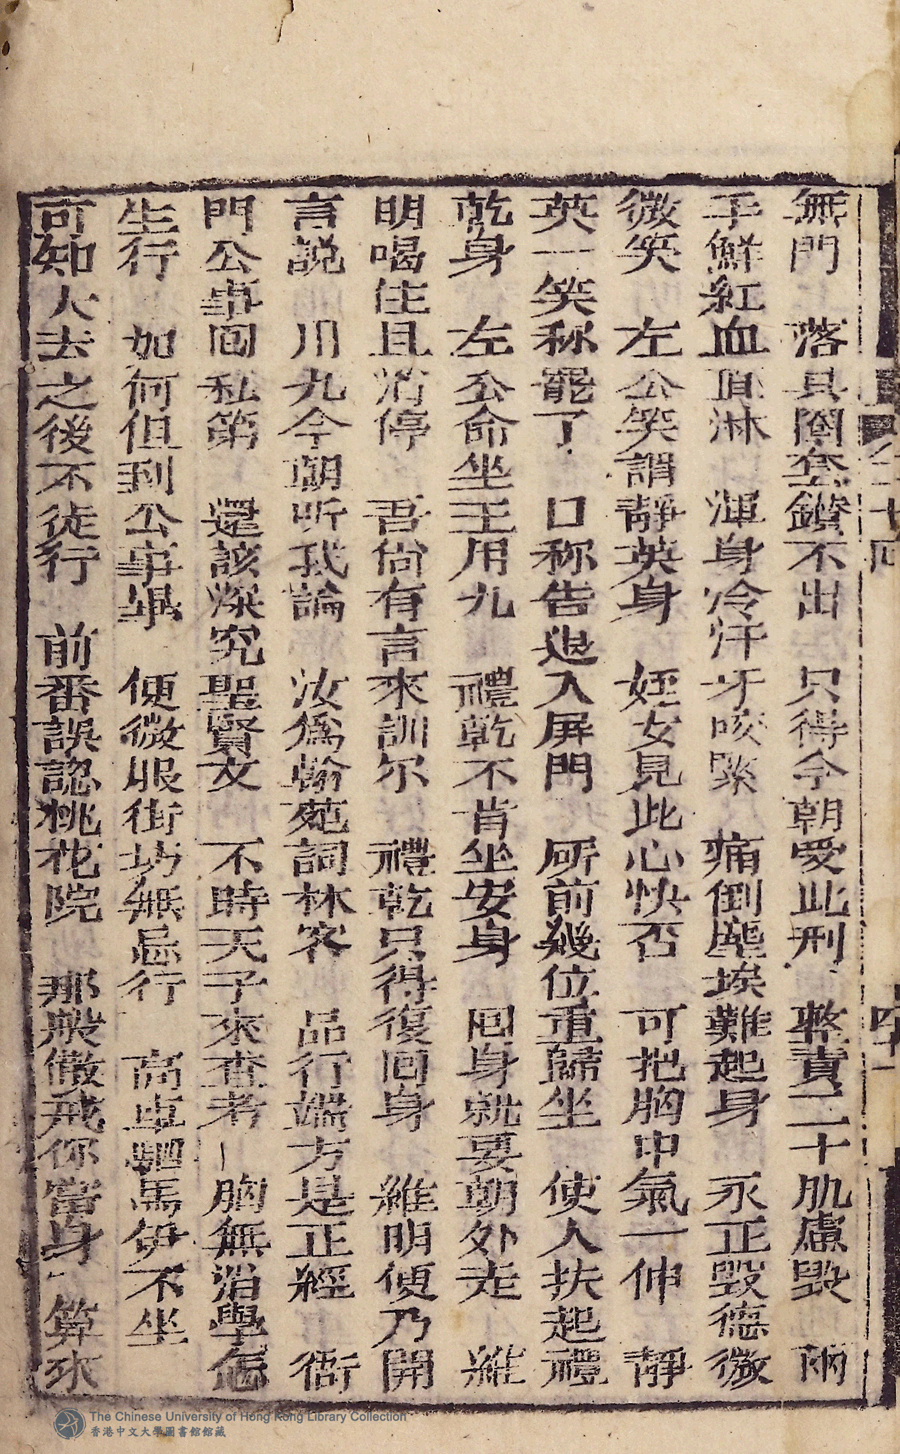 無門　落其圈套鑽不出　只得今朝受此刑　整責二十肌膚毀　兩
手鮮紅血直淋　渾身冷汗牙咬緊　痛倒塵埃難起身　永正毀德微
微笑　左公笑謂靜英身　姪女見此心快否　可把胸中氣一伸　靜
英一笑称罷了　口称告退入屏門　所前幾位重歸坐　使人扶起禮
乾身　左公命坐王用九　禮乾不肯坐安身　回身就要朝外走　維
明喝住且消停　吾尚有言來訓尔　禮乾只得復回身　維明便乃開
言説　川九今朝听我論　汝爲翰苑詞林客　品行端方是正經　衙
門公事回私第　還該深究聖賢文　不時天子來查考　胸無沿學怎
生行　如何但到公事畢　便微服街坊無忌行　高車駟馬伊不坐
可知大去之後不徒行　前番誤認桃花院　那般儆戒你當身　算來
二十回
四十一
The Chinese University of Hong Kong Library Collection
香港中文大學圖書館館藏